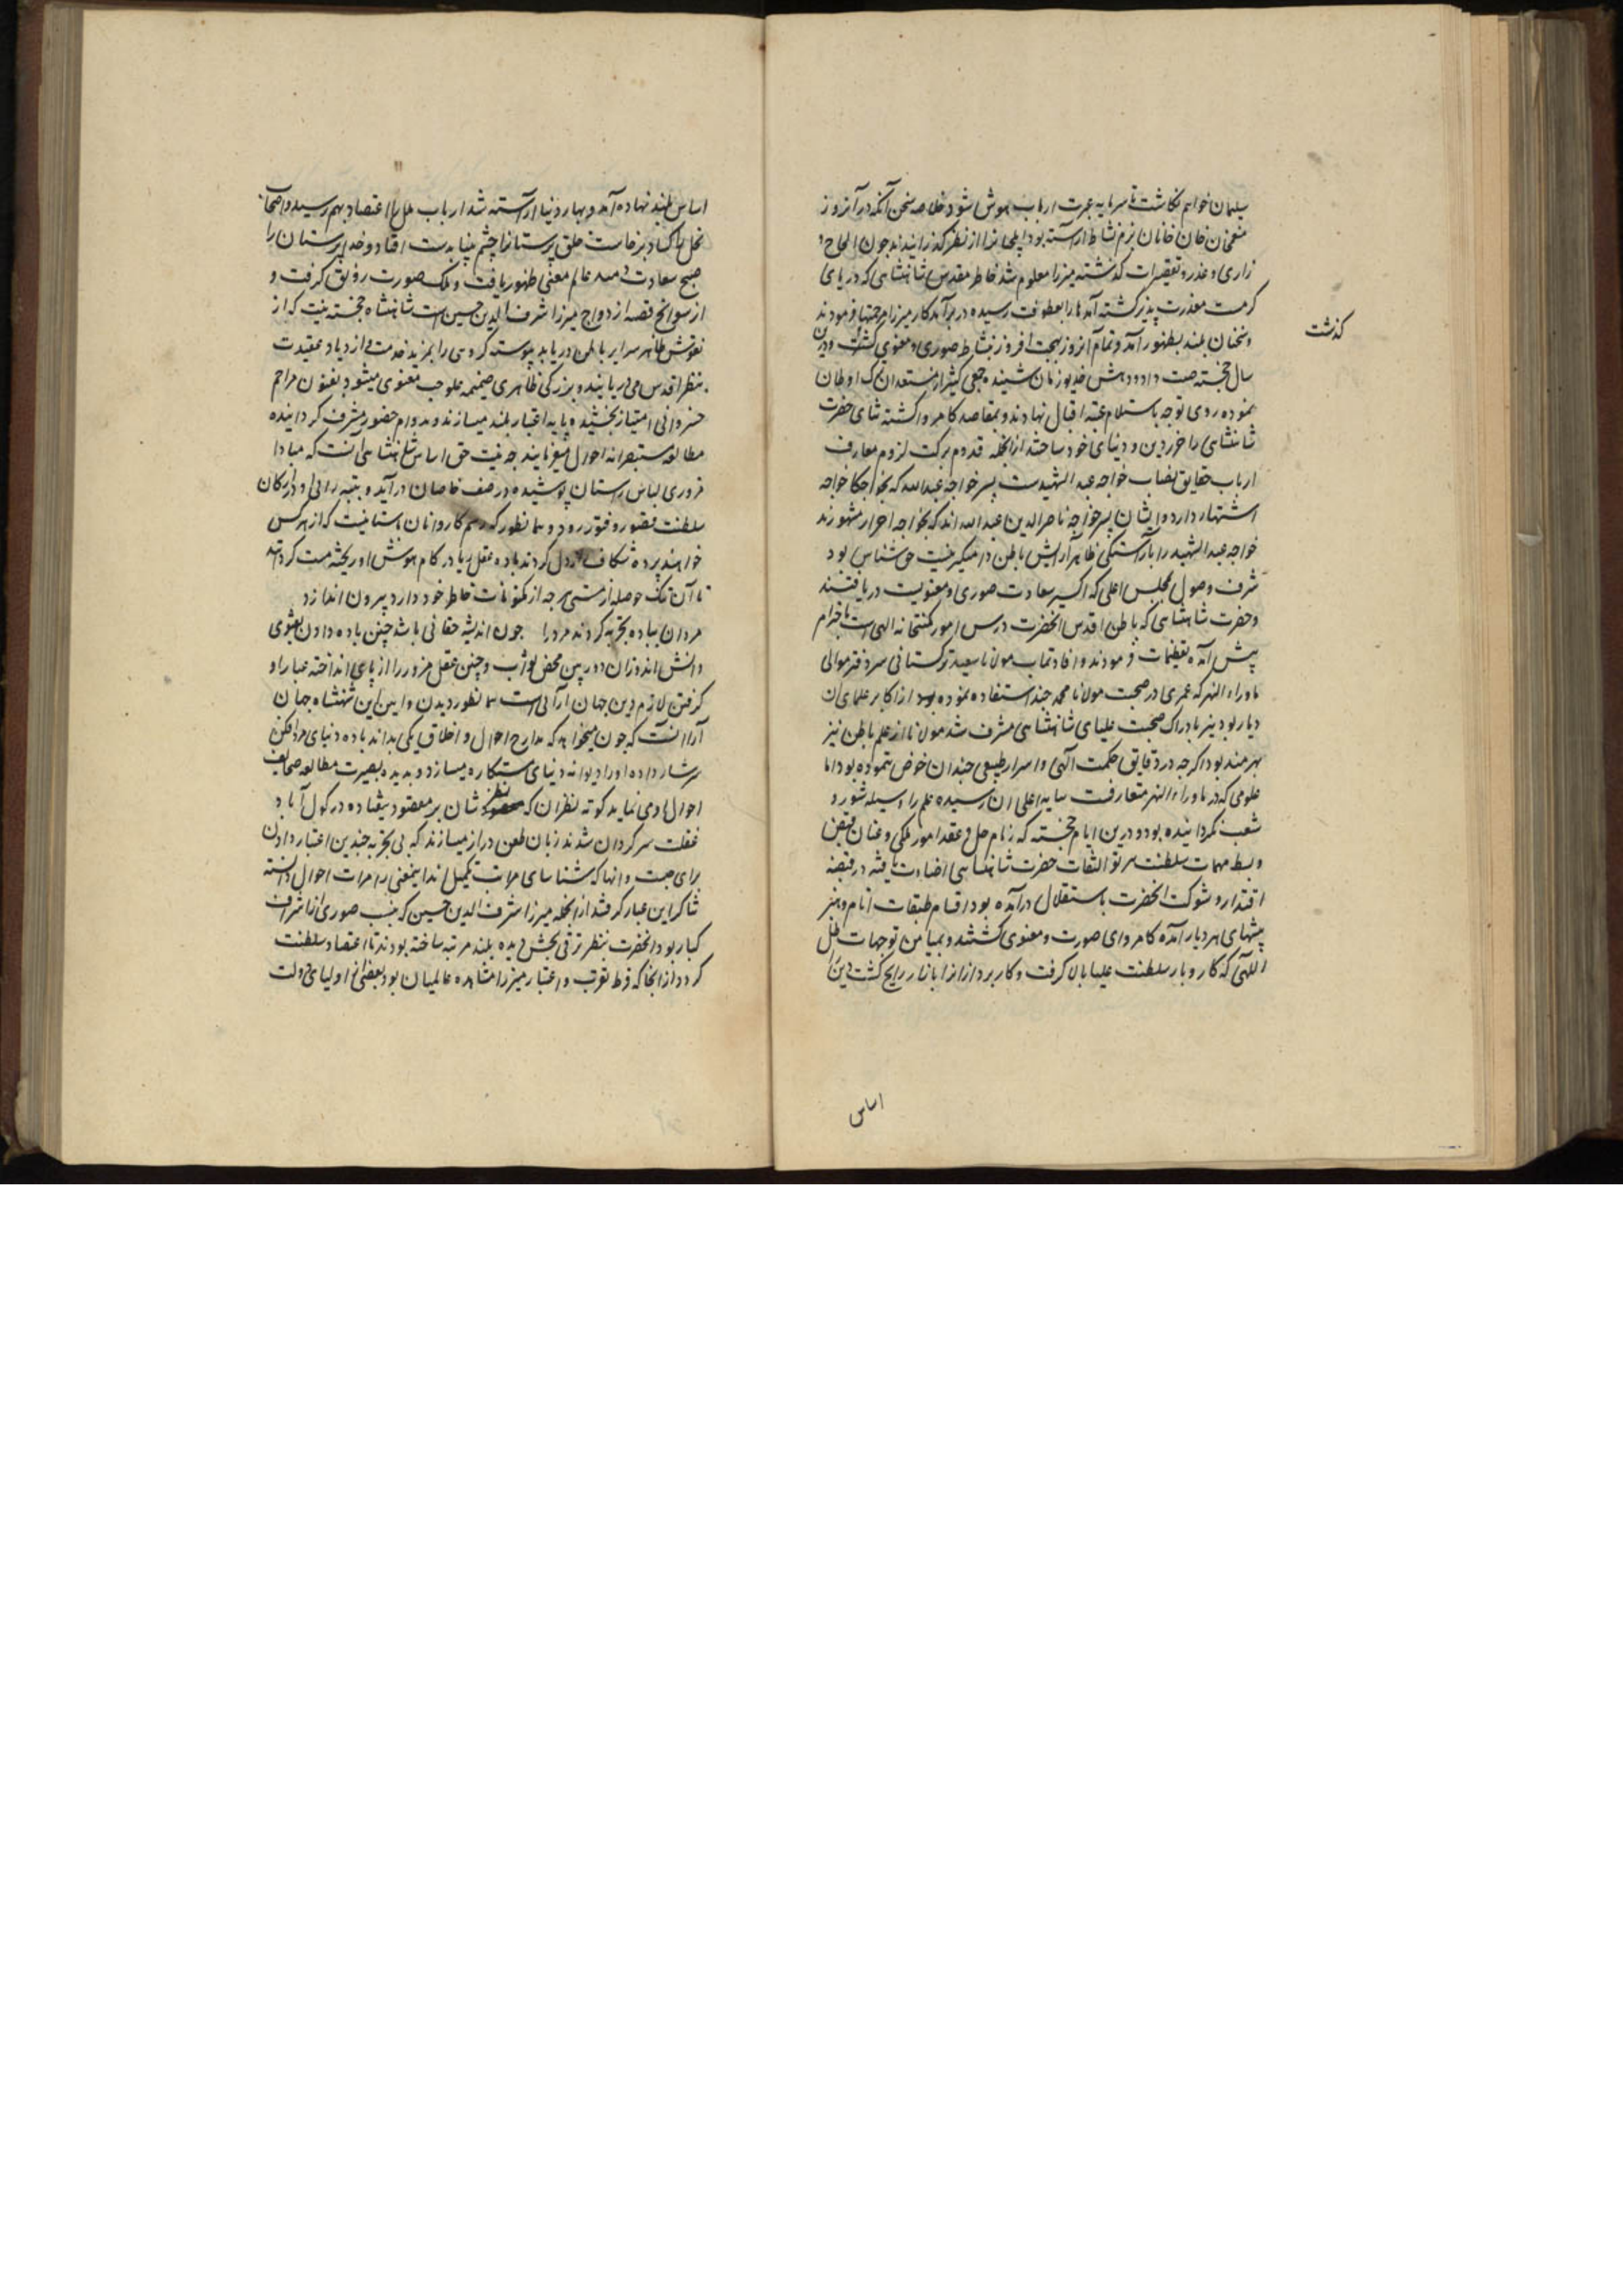 سلیمان خواهم نکاشت تا سرمایه عبرت ارباب هوش شود خلاصه سخن آنکه در آنروز
منعم خان خانخانان بزم نشاط آراسته بود ایلچیانرا از نظر کذرانیدند چون الحاح و
زاری و عذر و تقصیرات کذشته میرزا معلوم شد خاطر مقدس شاهنشاهی که دریای
کرمست معذرت پذیر کشته آمدها را بعطوفت رسیده در برآمد کار میرزا مرحمتها فرمودند
و سخنان بلند بظهور آمد و تمام آنروز بهجت افروز بنشاط صوری و معنوی کذشت و درین
کذشت
سال خجسته صیت داد و دهش خدیو زمان شنیده جمعی کثیر از مستعدان ترک اوطان
نموده روی توجه باستلام عتبه اقبال نهادند و بمقاصد کامروا کشته ثنای حضرت
شاهنشاهی را حرز دین و دنیای خود ساختند از انجمله قدوم برکت لزوم معارف
ارباب حقایق نصاب خواجه عبد الشهیدست پسر خواجه عبدالله که بخواجکا خواجه
اشتهار دارد و ایشان پسر خواجه ناصر الدین عبد الله اند که بخواجه احرار مشهورند
خواجه عبد الشهید را بآراستکی ظاهر آرایش باطن دامنکیر نیت حق شناس بود
شرف وصول مجلس اعلی که اکسیر سعادت صوری و معنویست دریافتند
و حضرت شاهنشاهی که باطن اقدس آنحضرت درس آموز مکتبخانه الهی است باحترام
پیش آمده تعظیمات فرمودند و افادتماب مولانا سعید ترکستانی سر دفتر موالی
ماوراء النهر که عمری در صحبت مولانا محمد جند استفاده نموده بود از اکابر علمای آن
دیار بود نیز بادراک صحبت علیای شاهنشاهی مشرف شد مولانا از علم باطن نیز
بهرمند بود اکرچه در دقایق حکمت آلهی و اسرار طبیعی چندان خوض ننموده بود اما
علومی که در ماوراء النهر متعارفست بپایه اعلی آن رسیده علم را وسیله شور و
شعب نکردانیده بود و درین ایام خجسته که زمام حل و عقد امور ملکی و عنان قبض
و بسط مهمات سلطنت بپرتو التفات حضرت شاهنشاهی اضاءت یافته در قبضه
اقتدار و شوکت آنحضرت باستقلال درآمده بود اقسام طبقات انام و هنر
پیشهای هر دیار آمده کامروای صورت و معنوی کشتند و بمیامن توجهات ظل
اللهی که کار و بار سلطنت علیا بالا کرفت و کارپردازانرا بازار رایج کشت دین را
اساس
اساس بلند نهاده آمد و بهار دنیا آراسته شد ارباب ملل را اعتضاد بهم رسید و اصحاب
نحل را کساد برخاست خلق پرستانرا چشم بینا بدست افتاد و خدا پرستان را
صبح سعادت دمید عالم معنی ظهور یافت و ملک صورت رونق کرفت و
از سوانح قصه ازدواج میرزا شرف الدین حسین است شاهنشاه خجسته نیت که از
نقوش ظاهر سرایر باطن دریابد پیوسته کروهی را بمزید خدمت و ازدیاد عقیدت
منظر اقدس می دریابند و بزرکی ظاهری ضمیمه علو حب معنوی میشود بفنون مراحم
خسروانی امتیاز بخشیده پایه اعتبار بلند میسازند و بدوام حضور مشرف کردانیده
مطالعه مستبصرانه احوال میفرمایند چه نیت حق اساس شاهنشاهی آنست که مبادا
مزوری لباس راستان پوشیده در صف خاصان درآید و بتبه رائی او در ارکان
سلطنت قصور و فتور رود و همانطور که رسم کاردانان باستانیست که از هر کس
خواهند پرده شکاف راز دل کردند باده عقل ربا در کام هوش او ریخته مست کردانند
تا آن تنک حوصله از مستی هر چه از مکنونات خاطر خود دارد بیرون اندازد
مردان بباده تجربه کردند مرد را چون اندیشه حقانی باشد چنین باده دادن بفتوی
دانش اندوزان دوربین محض ثوابست و چنین عقل مزور را از پای انداخته عیار او
کرفتن لازم دین جهان آرائی است همانطور دیدن و آیین این شهنشاه جهان
آرا آنست که چون میخواهد که مدارج احوال و اخلاق یکی بداند باده دنیای مردافکن
سرشار داده او را دیوانه دنیای ستمکاره میسازد و بدیده بصیرت مطالعه صحایف
احوال او می نماید کوته نظران که نظر شان بر مقصود نیفتاده در کول آباد
غفلت سرکردان شدند زبان طعن دراز میسازند که بی تجربه چندین اعتبار دادن
برای چیست و آنها که شناسای مراتب تکمیل اند اینمعنی را مرات احوال دانسته
شاکر این عیار کرفتند از انجمله میرزا شرف الدین حسین که بنسب صوری از اشراف
کبار بود آنحضرت بنظر ترقی بخش دیده بلند مرتبه ساخته بودند تا اعتضاد سلطنت
کردد از آنجا که فرط تقرب و اعتبار میرزا مشاهده عالمیان بود بعضی از اولیای دولت